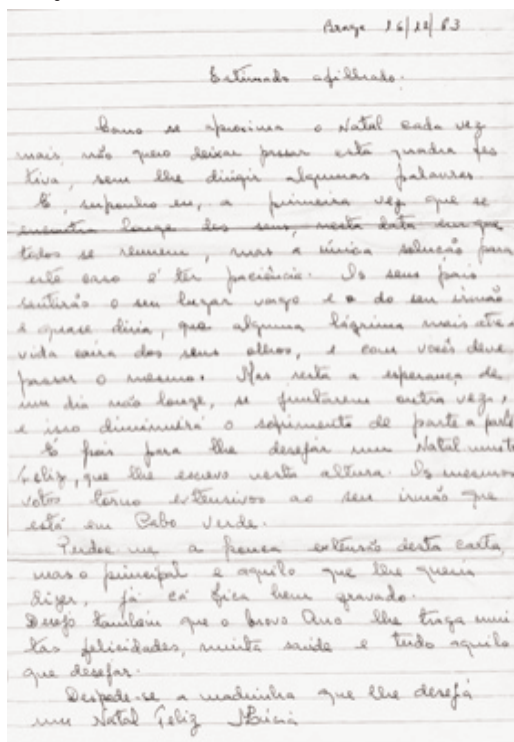 Braga 16/12/63
Estimado afilhado.
Como se aproxima o Natal cada vez
mais, não quero deixar passar esta quadra fes
tiva, sem lhe dirigir algumas palavras.
É, suponho eu, a primeira vez que se
encontra longe dos seus, nesta data em que
todos se reunem, mas a única solução para
este caso é ter paciência. Os seus pais
sentirão o seu lugar vago e o do seu irmão
e quase diria, que alguma lágrima mais atre-
vida caira dos seus olhos, e com vocês deve
passar o mesmo. Mas resta a esperança de
um dia não longe, se juntarem outra vez,
e isso diminuirá o sofrimento de parte a parte
É pois para lhe desejar um Natal muito
Feliz, que lhe escrevo nesta altura. Os mesmos
votos torno extensivos ao seu irmão que
está em Cabo Verde.
Perdoe me a pouca extensão desta carta,
mas o principal e aquilo que lhe queria
dizer, já cá fica bem gravado.
Desejo também que o Novo Ano lhe traga mui
tas felicidades, muita saúde e tudo aquilo
que desejar.
Despede-se a madrinha que lhe deseja
um Natal Feliz